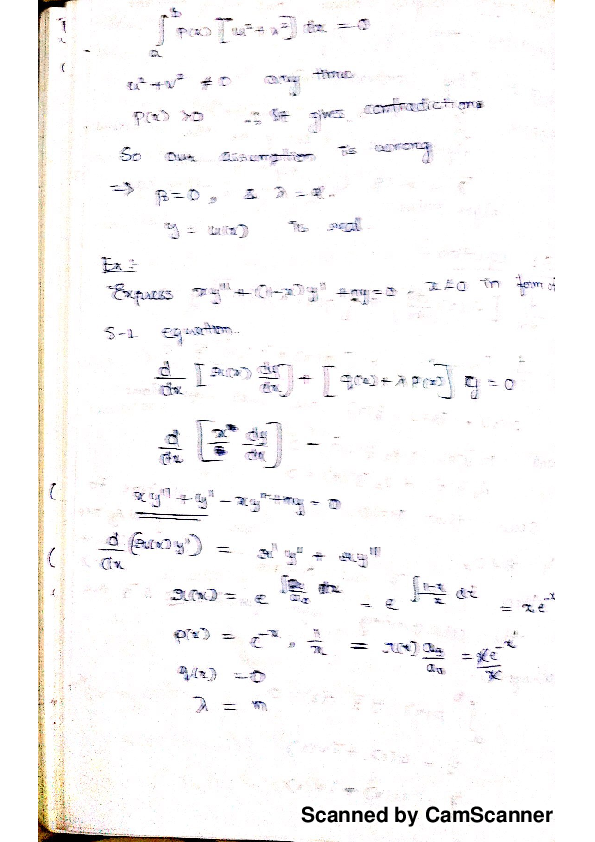 ∫_a^b p(x) [u²+v²] dx = 0
u²+v² ≠ 0 any time
p(x) >0 ∴ It gives contradictions
So our assumption is wrong
⇒ β=0, & λ = α.
y = u(x) is real
Ex :-
Express xy'' + (1-x)y' + ny=0, x≠0 in form of
S-L equation.
d/dx [r(x) dy/dx] + [q(x)+λp(x)] y = 0
d/dx [ dy/dx ] =
xy'' + y' - xy' + ny = 0
d/dx (r(x)y') = r'y' + ry''
r(x) = e^∫ dx = e^∫(1-x)/x dx = xe^-x
p(x) = e^-x, = r(x) = xe^-x/x
q(x) = 0
λ = n
Scanned by CamScanner